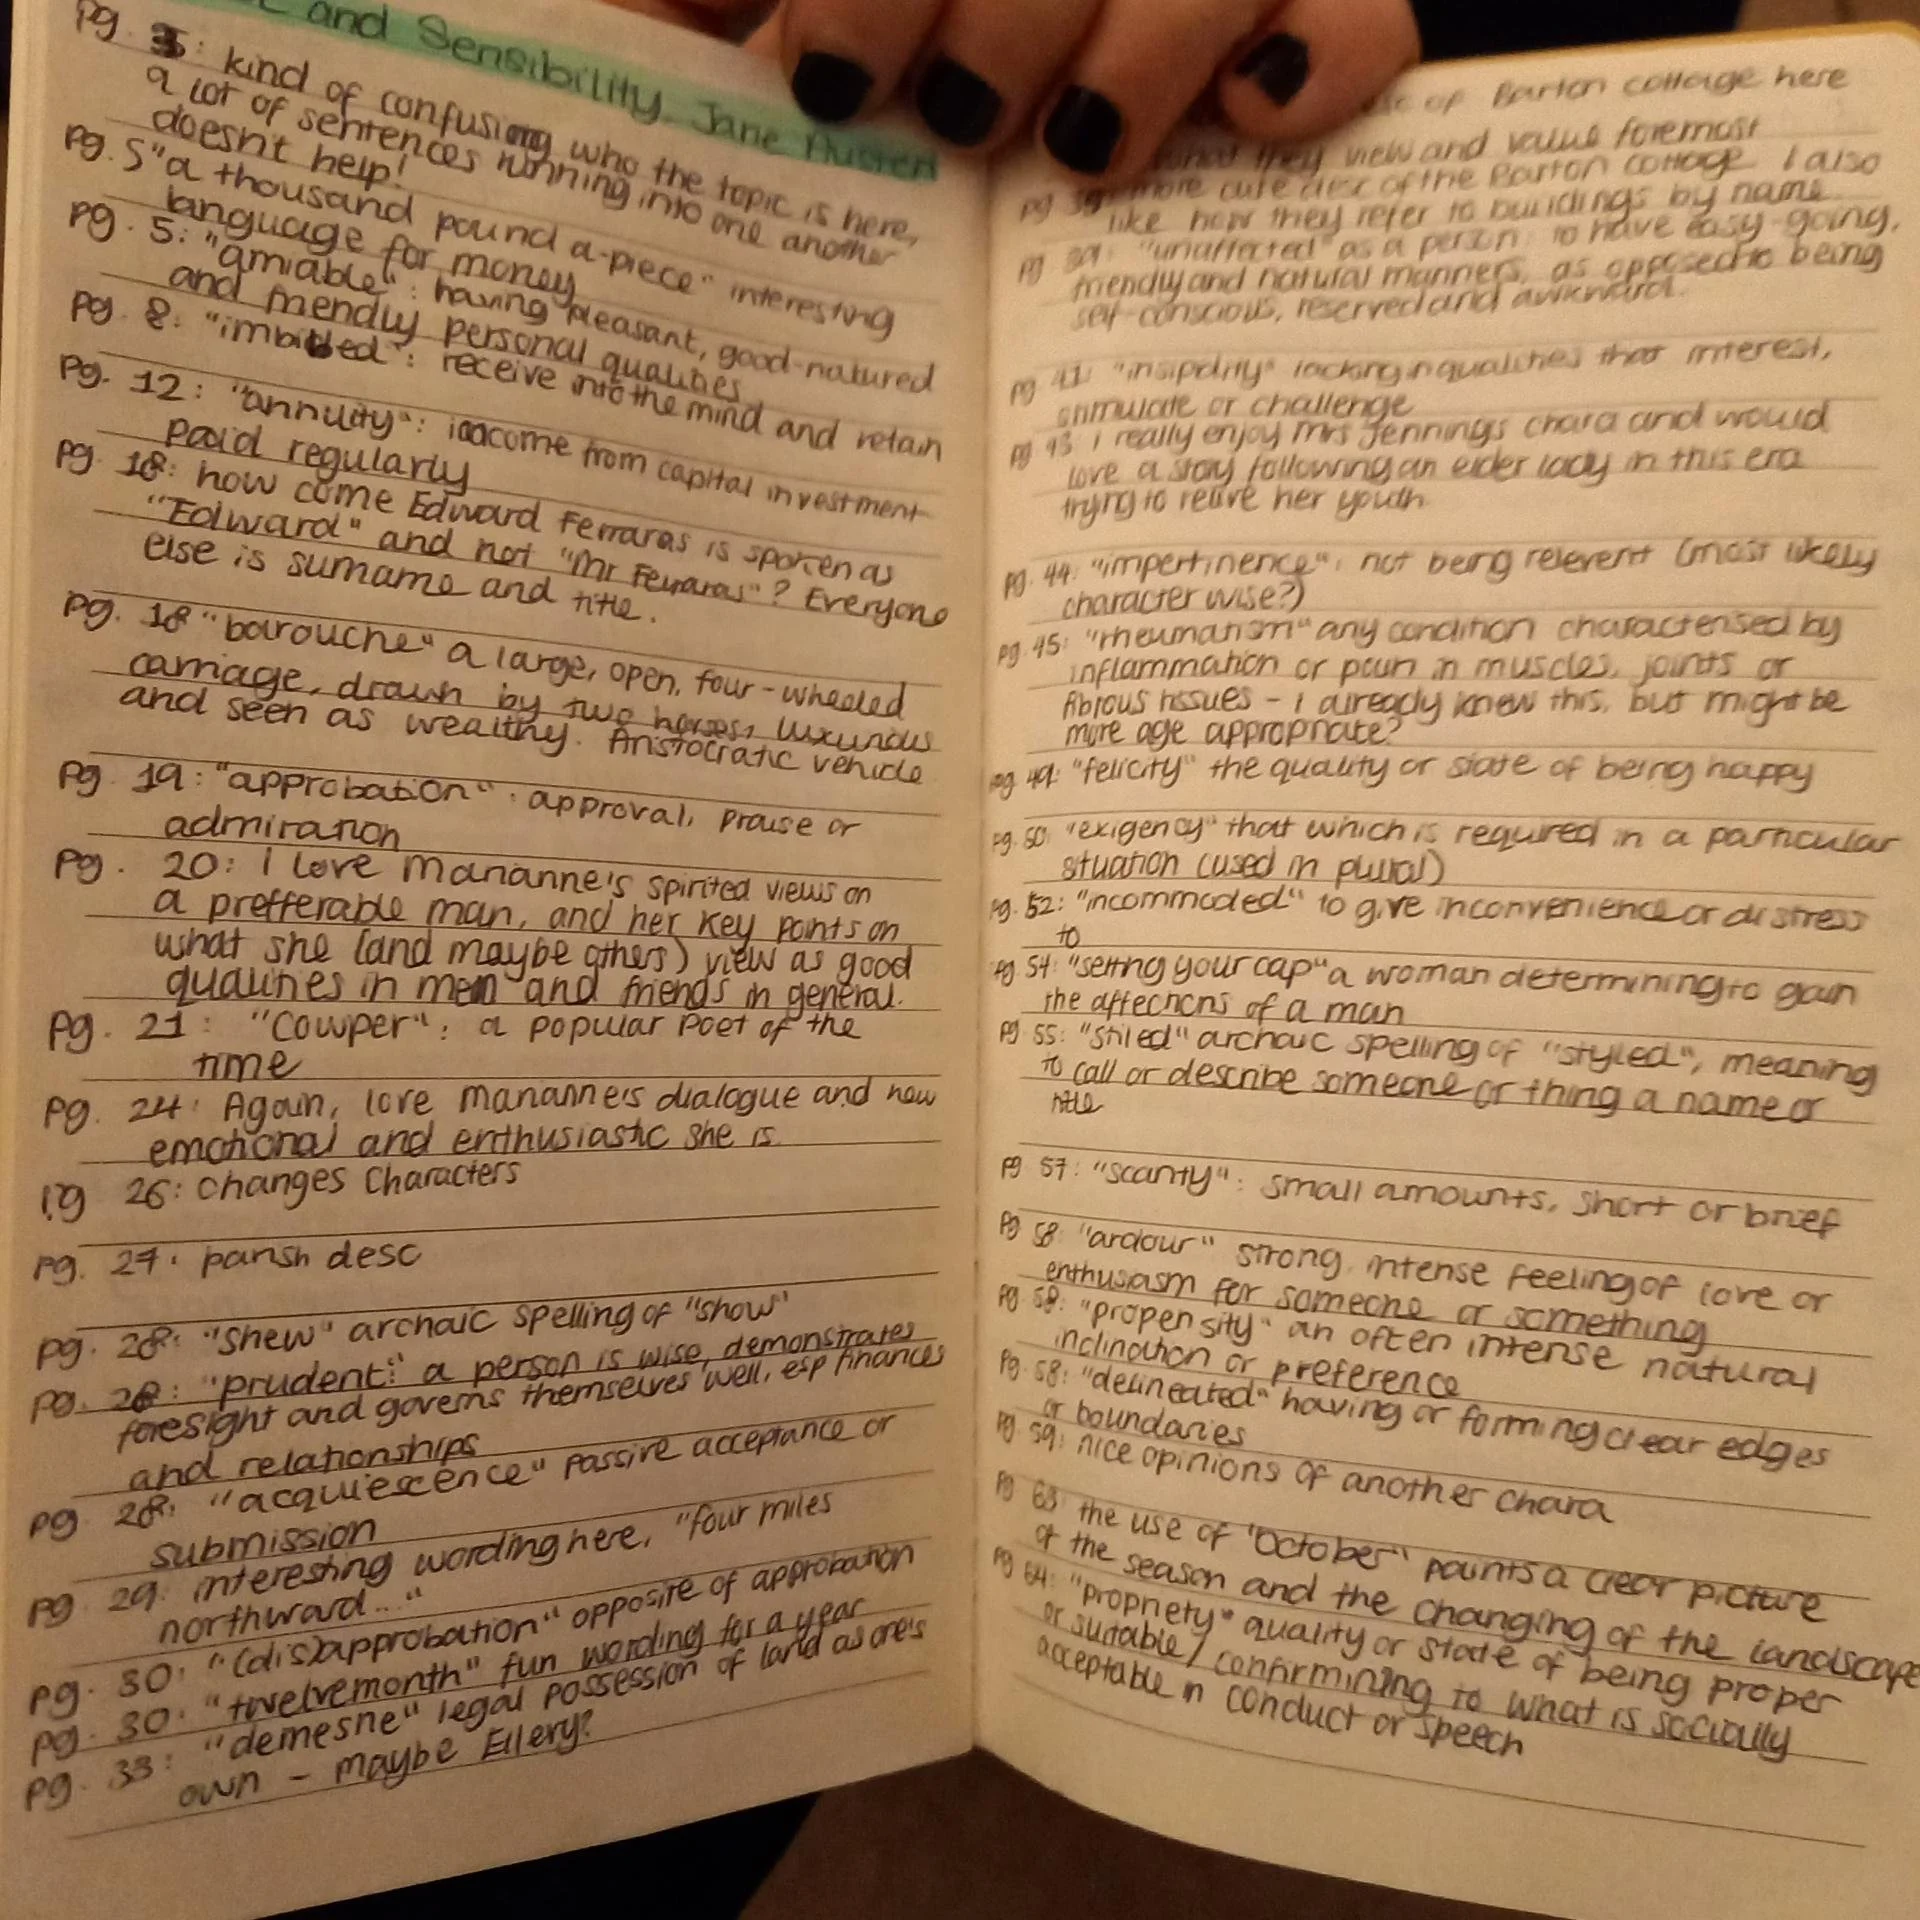 and Sensibility, Jane Austen
pg. 5: kind of confusing who the topic is here,
a lot of sentences running into one another
doesn't help!
pg. 5 "a thousand pound a-piece" interesting
language for money
pg. 5: "amiable": having pleasant, good-natured
and friendly personal qualities
pg. 8: "imbibed": receive into the mind and retain
pg. 12: "annuity": income from capital investment
paid regularly
pg. 18: how come Edward Ferraras is spoken as
"Edward" and not "Mr Ferraras"? Everyone
else is surname and title.
pg. 18 "barouche" a large, open, four-wheeled
carriage, drawn by two horses, luxurious
and seen as wealthy. Aristocratic vehicle
pg. 19: "approbation": approval, praise or
admiration
pg. 20: I love Marianne's spirited views on
a prefferable man, and her key points on
what she (and maybe others) view as good
qualities in men and friends in general.
pg. 21: "Cowper": a popular poet of the
time
pg. 24: Again, love Marianne's dialogue and how
emotional and enthusiastic she is
pg 26: changes characters
pg. 27: parish desc
pg. 28: "shew" archaic spelling of "show"
pg. 28: "prudent": a person is wise, demonstrates
foresight and governs themselves well, esp finances
and relationships
pg 28: "acquiescence" passive acceptance or
submission
pg 29: interesting wording here, "four miles
northward..."
pg. 30: "(dis)approbation" opposite of approbation
pg. 30: "twelvemonth" fun wording for a year
pg. 33: "demesne" legal possession of land as one's
own - maybe Ellery?
of Barton cottage here
what they view and value foremost
pg more cute desc of the Barton cottage. I also
like how they refer to buildings by name
pg 39: "unaffected" as a person: to have easy-going,
friendly and natural manners, as opposed to being
self-conscious, reserved and awkward.
pg 41: "insipidity" lacking in qualities that interest,
stimulate or challenge
pg 43 I really enjoy Mrs Jennings chara and would
love a story following an elder lady in this era
trying to relive her youth.
pg. 44: "impertinence": not being relevent (most likely
character wise?)
pg. 45: "rheumatism" any condition characterised by
inflammation or pain in muscles, joints or
fibrous tissues - I already knew this, but might be
more age appropriate?
pg 49: "felicity" the quality or state of being happy
pg. 50: "exigency" that which is required in a particular
situation (used in plural)
pg. 52: "incommoded" to give inconvenience or distress
to
pg. 54: "setting your cap" a woman determining to gain
the affections of a man
pg 55: "stiled" archaic spelling of "styled", meaning
to call or describe someone or thing a name or
title
pg 57: "scanty": small amounts, short or brief
pg 58: "ardour" strong, intense feeling of love or
enthusiasm for someone or something
pg 58: "propensity" an often intense natural
inclination or preference
pg. 58: "delineated" having or forming clear edges
or boundaries
pg. 59: nice opinions of another chara
pg 63: the use of "October" paints a clear picture
of the season and the changing of the landscape
pg 64: "propriety" quality or state of being proper
or suitable / confirmining to what is socially
acceptable in conduct or speech